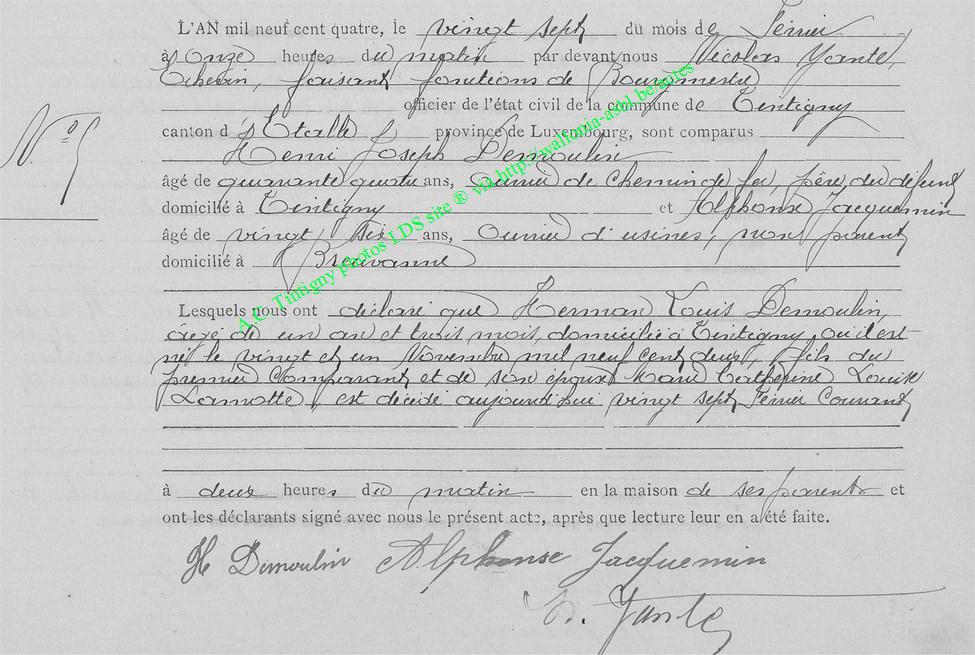 L'AN mil neuf cent quatre, le vingt sept du mois de Février
à onze heures du matin par devant nous Nicolas Yante,
Echevin, faisant fonctions de Bourgmestre
officier de l'état civil de la commune de Tintigny
canton d'Etalle province de Luxembourg, sont comparus
Henri Joseph Demoulin
N°
âgé de quarante quatre ans, Ouvrier de chemin de fer, père du défunt
domicilié à Tintigny et Alphonse Jacquemin
âgé de vingt six ans, Ouvrier d'usines, non parent
domicilié à Breuvanne
Lesquels nous ont déclaré que Herman Louis Demoulin,
âgé de un an et trois mois, domicilié à Tintigny, où il est
né le vingt et un Novembre mil neuf cent deux, fils du
premier Comparant et de son épouse Marie Catherine Louise
Lamotte, est décédé aujourd'hui vingt sept Février Courant
à deux heures du matin en la maison de ses parents et
ont les déclarants signé avec nous le présent acte, après que lecture leur en a été faite.
H Demoulin Alphonse Jacquemin
N. Yante
A.C. Tintigny photos LDS site ® via http://wallonia-asbl.be/actes